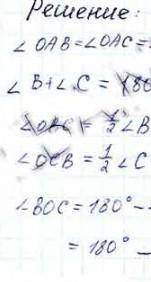 Решение:
∠OAB=∠OAC=
∠B+∠C = 180
∠OBC = 1/2 ∠B
∠OCB = 1/2 ∠C
∠BOC = 180° -
= 180° -